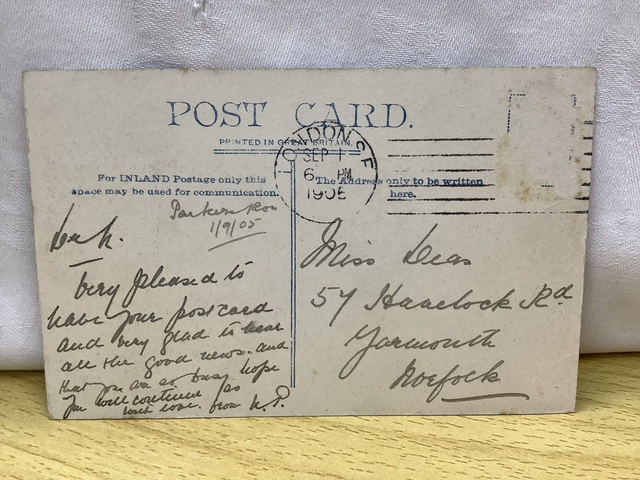 POST CARD.
PRINTED IN GREAT BRITAIN.
For INLAND Postage only this
space may be used for communication.
The Address only to be written
here.
LONDON S.E.
SEP 1
6 PM
1905
1/9/05
Very pleased to
have your postcard
and very glad to hear
all the good news. and
that you are so busy. hope
you will continue so
with love. from
Miss Deas
57 Havelock Rd
Yarmouth
Norfolk